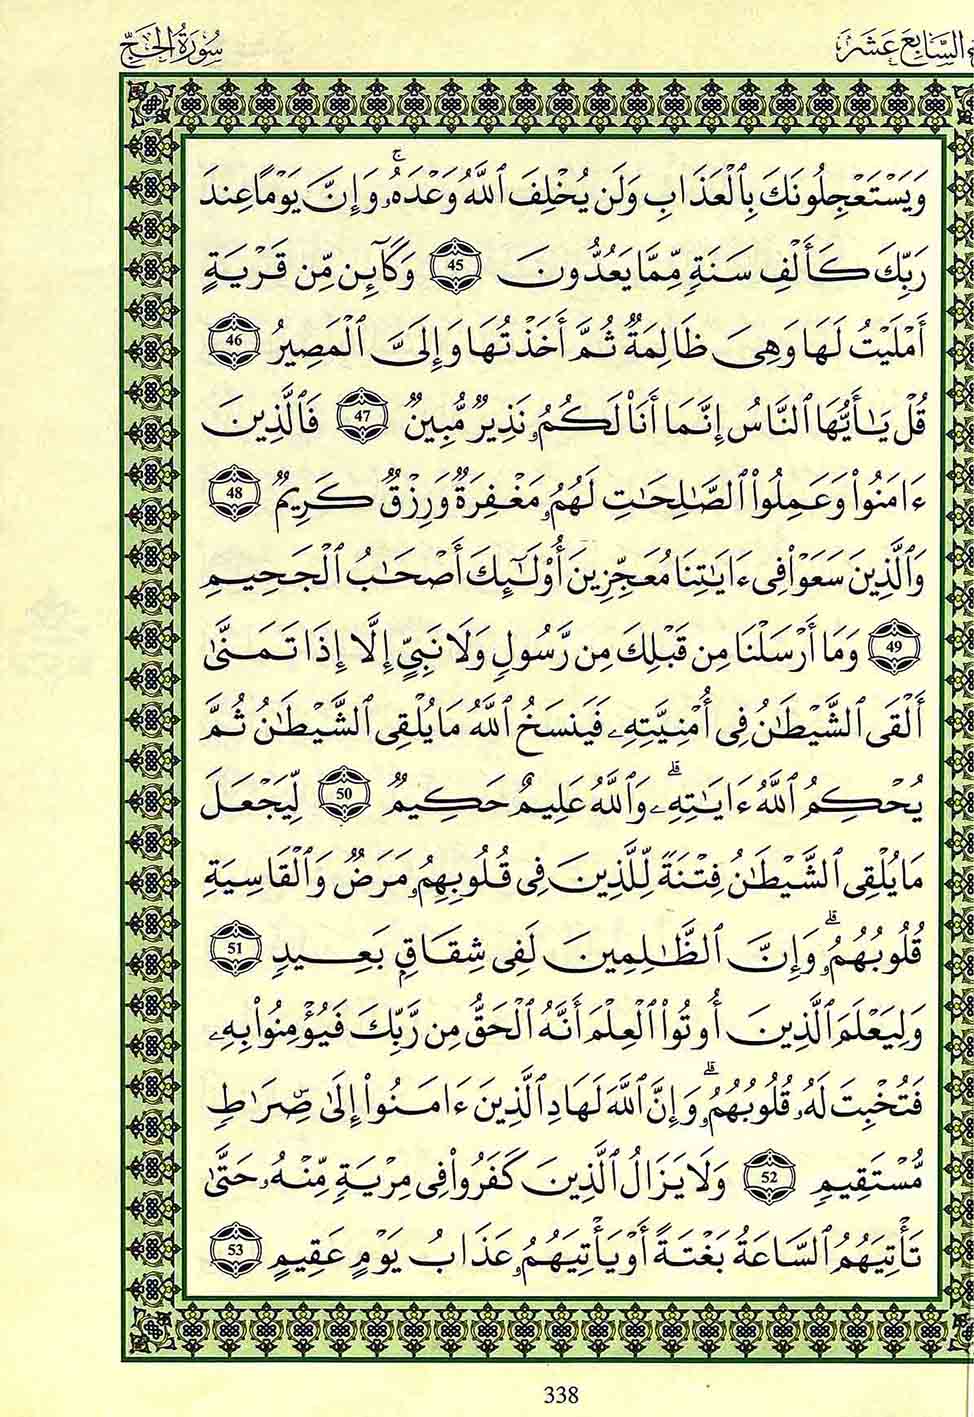 ء السَّابِعَ عَشَرَ
سُورَةُ الحَجِّ
وَيَسْتَعْجِلُونَكَ بِالْعَذَابِ وَلَن يُخْلِفَ ٱللَّهُ وَعْدَهُۥۚ وَإِنَّ يَوْمًا عِندَ
رَبِّكَ كَأَلْفِ سَنَةٍ مِّمَّا يَعُدُّونَ 45 وَكَآئِن مِّن قَرْيَةٍ
أَمْلَيْتُ لَهَا وَهِىَ ظَالِمَةٌ ثُمَّ أَخَذتُّهَا وَإِلَىَّ ٱلْمَصِيرُ 46
قُلْ يَٰٓأَيُّهَا ٱلنَّاسُ إِنَّمَا أَنَا۠ لَكُمُۥ نَذِيرٌ مُّبِينٌ 47 فَالَّذِينَ
ءَامَنُوا۟ وَعَمِلُوا۟ ٱلصَّٰلِحَٰتِ لَهُمُۥ مَغْفِرَةٌ وَرِزْقٌ كَرِيمٌ 48
وَٱلَّذِينَ سَعَوْا۟ فِى ءَايَٰتِنَا مُعَجِّزِينَ أُو۟لَٰٓئِكَ أَصْحَٰبُ ٱلْجَحِيمِ
49 وَمَا أَرْسَلْنَا مِن قَبْلِكَ مِن رَّسُولٍ وَلَا نَبِىٍّ إِلَّا إِذَا تَمَنَّىٰ
أَلْقَى ٱلشَّيْطَٰنُ فِى أُمْنِيَّتِهِۦ فَيَنسَخُ ٱللَّهُ مَا يُلْقِى ٱلشَّيْطَٰنُ ثُمَّ
يُحْكِمُ ٱللَّهُ ءَايَٰتِهِۦۗ وَٱللَّهُ عَلِيمٌ حَكِيمٌ 50 لِّيَجْعَلَ
مَا يُلْقِى ٱلشَّيْطَٰنُ فِتْنَةً لِّلَّذِينَ فِى قُلُوبِهِمُۥ مَرَضٌ وَٱلْقَاسِيَةِ
قُلُوبُهُمُۥۗ وَإِنَّ ٱلظَّٰلِمِينَ لَفِى شِقَاقٍ بَعِيدٍ 51
وَلِيَعْلَمَ ٱلَّذِينَ أُوتُوا۟ ٱلْعِلْمَ أَنَّهُ ٱلْحَقُّ مِن رَّبِّكَ فَيُؤْمِنُوا۟ بِهِۦ
فَتُخْبِتَ لَهُۥ قُلُوبُهُمُۥۗ وَإِنَّ ٱللَّهَ لَهَادِ ٱلَّذِينَ ءَامَنُوا۟ إِلَىٰ صِرَٰطٍ
مُّسْتَقِيمٍ 52 وَلَا يَزَالُ ٱلَّذِينَ كَفَرُوا۟ فِى مِرْيَةٍ مِّنْهُۥ حَتَّىٰ
تَأْتِيَهُمُ ٱلسَّاعَةُ بَغْتَةً أَوْ يَأْتِيَهُمُۥ عَذَابُ يَوْمٍ عَقِيمٍ 53
338